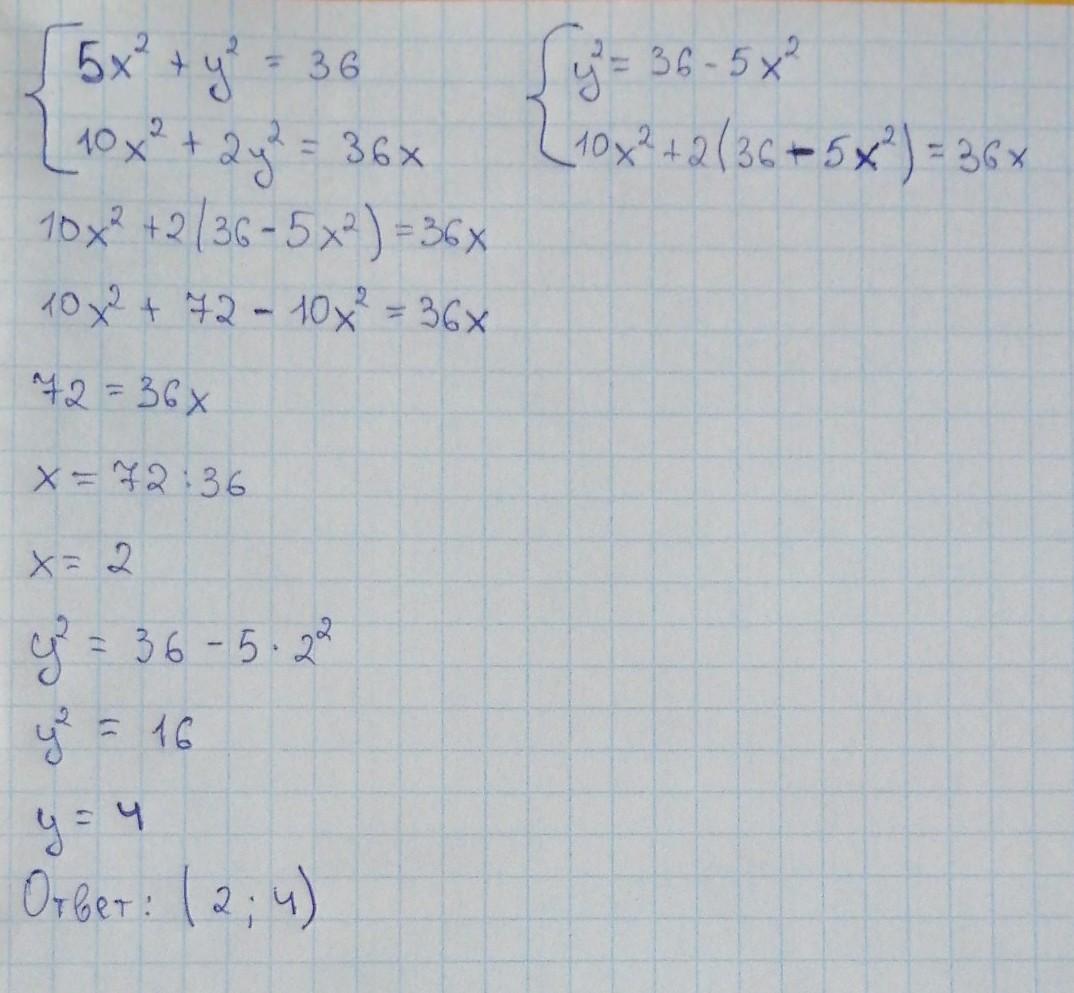 5x² + y² = 36
10x² + 2y² = 36x
y² = 36 - 5x²
10x² + 2(36 - 5x²) = 36x
10x² + 2(36 - 5x²) = 36x
10x² + 72 - 10x² = 36x
72 = 36x
x = 72 : 36
x = 2
y² = 36 - 5 · 2²
y² = 16
y = 4
Ответ: (2; 4)